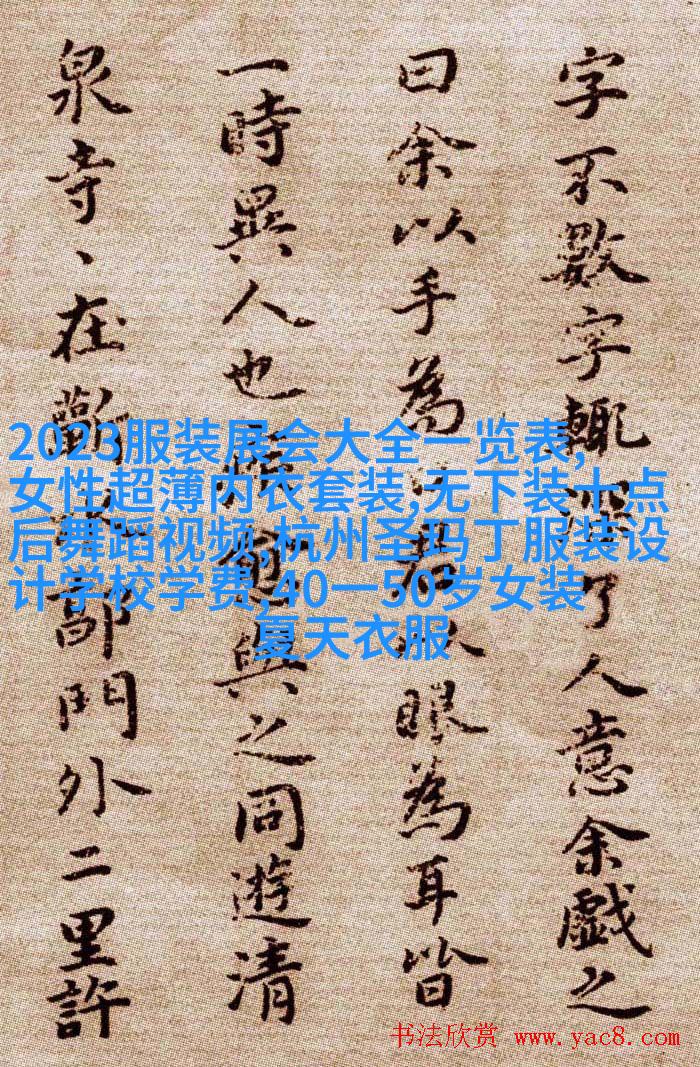 字不數字輙了人意余戲之
曰余以手為君以眼為耳皆
一時異人也愈與之同遊清
泉寺、在蘄郭門外二里許
2023服装展会大全一览表,
女性超薄内衣套装,无下装十点
后舞蹈视频,杭州圣玛丁服装设
计学校学费,40一50岁女装
夏天衣服
书法欣赏 www.yac8.com